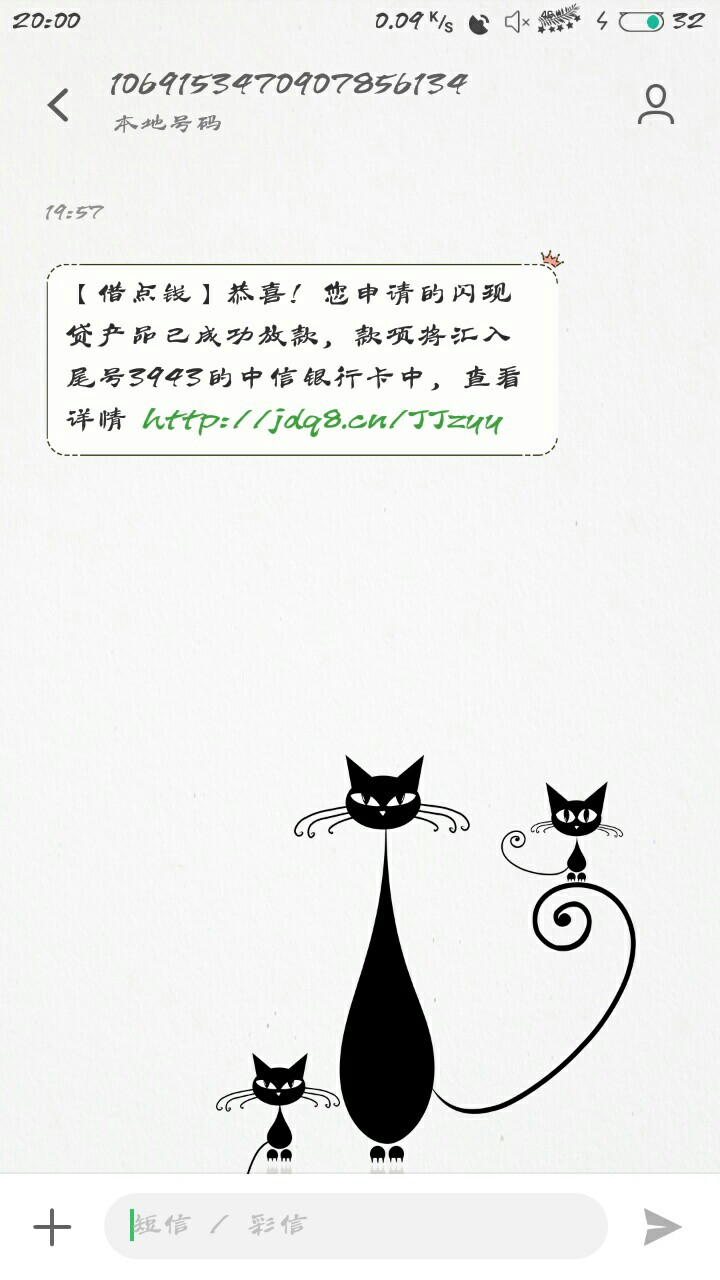 20:00 0.09 K/s 32
1069153470907856134
本地号码
19:57
【借点钱】恭喜！您申请的闪现
贷产品已成功放款，款项将汇入
尾号3943的中信银行卡中，查看
详情 http://jdq8.cn/JJzyy
短信 / 彩信